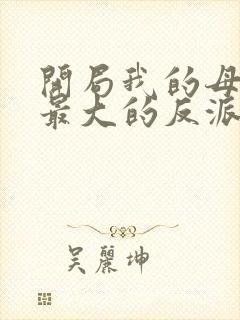 開局我的母
最大的反派
吳麗坤